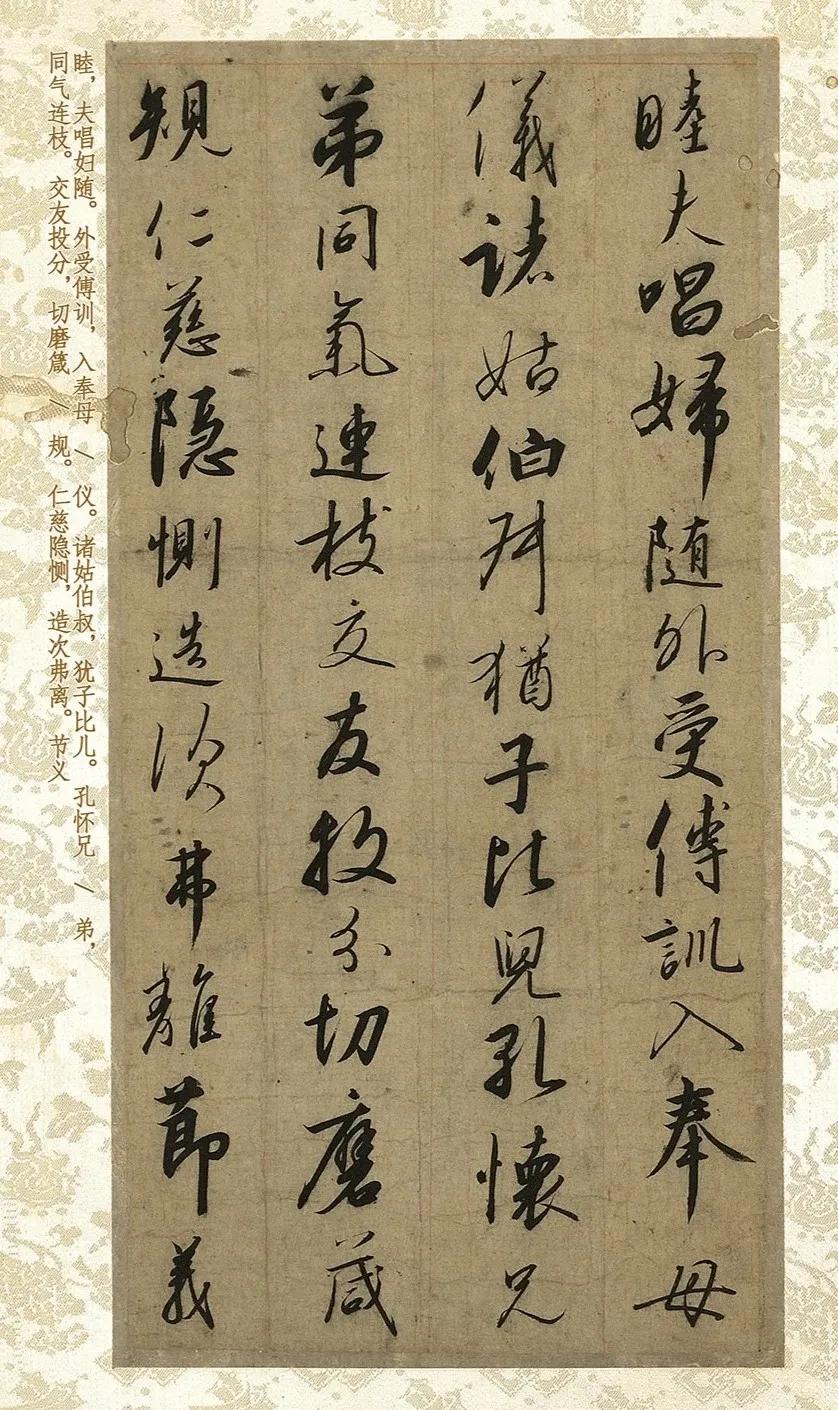 睦夫唱婦随外受傅訓入奉母
儀諸姑伯叔猶子比兒孔懷兄
弟同氣連枝交友投分切磨葴
規仁慈隠惻造次弗離節義
睦，夫唱妇随。外受傅训，入奉母 / 仪。诸姑伯叔，犹子比儿。孔怀兄 / 弟，
同气连枝。交友投分，切磨箴 / 规。仁慈隐恻，造次弗离。节义